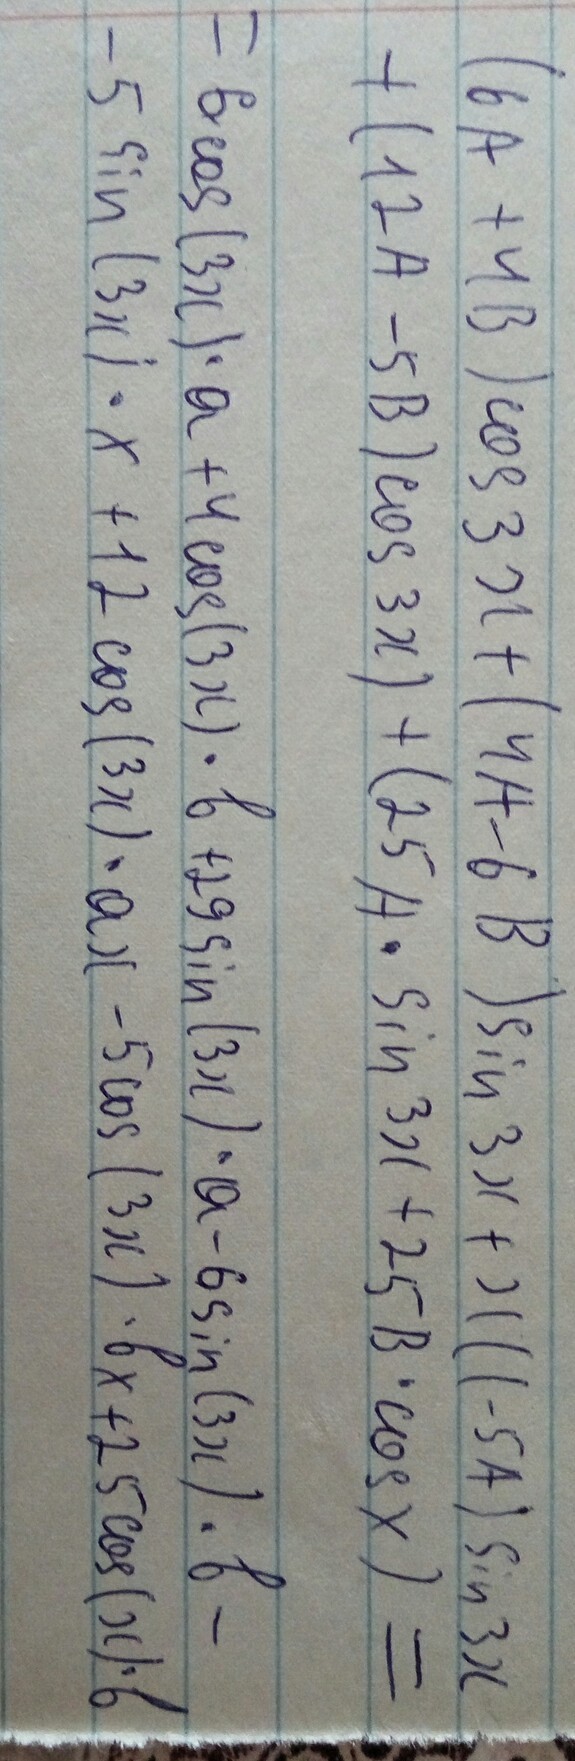 (6A + 4B) cos 3x + (4A - 6B) sin 3x + x((-5A) sin 3x
+ (12A - 5B) cos 3x) + (25A · sin 3x + 25B · cos x) =
= 6 cos (3x) · a + 4 cos (3x) · b + 29 sin (3x) · a - 6 sin (3x) · b -
- 5 sin (3x) · x + 12 cos (3x) · ax - 5 cos (3x) · bx + 25 cos (x) · b